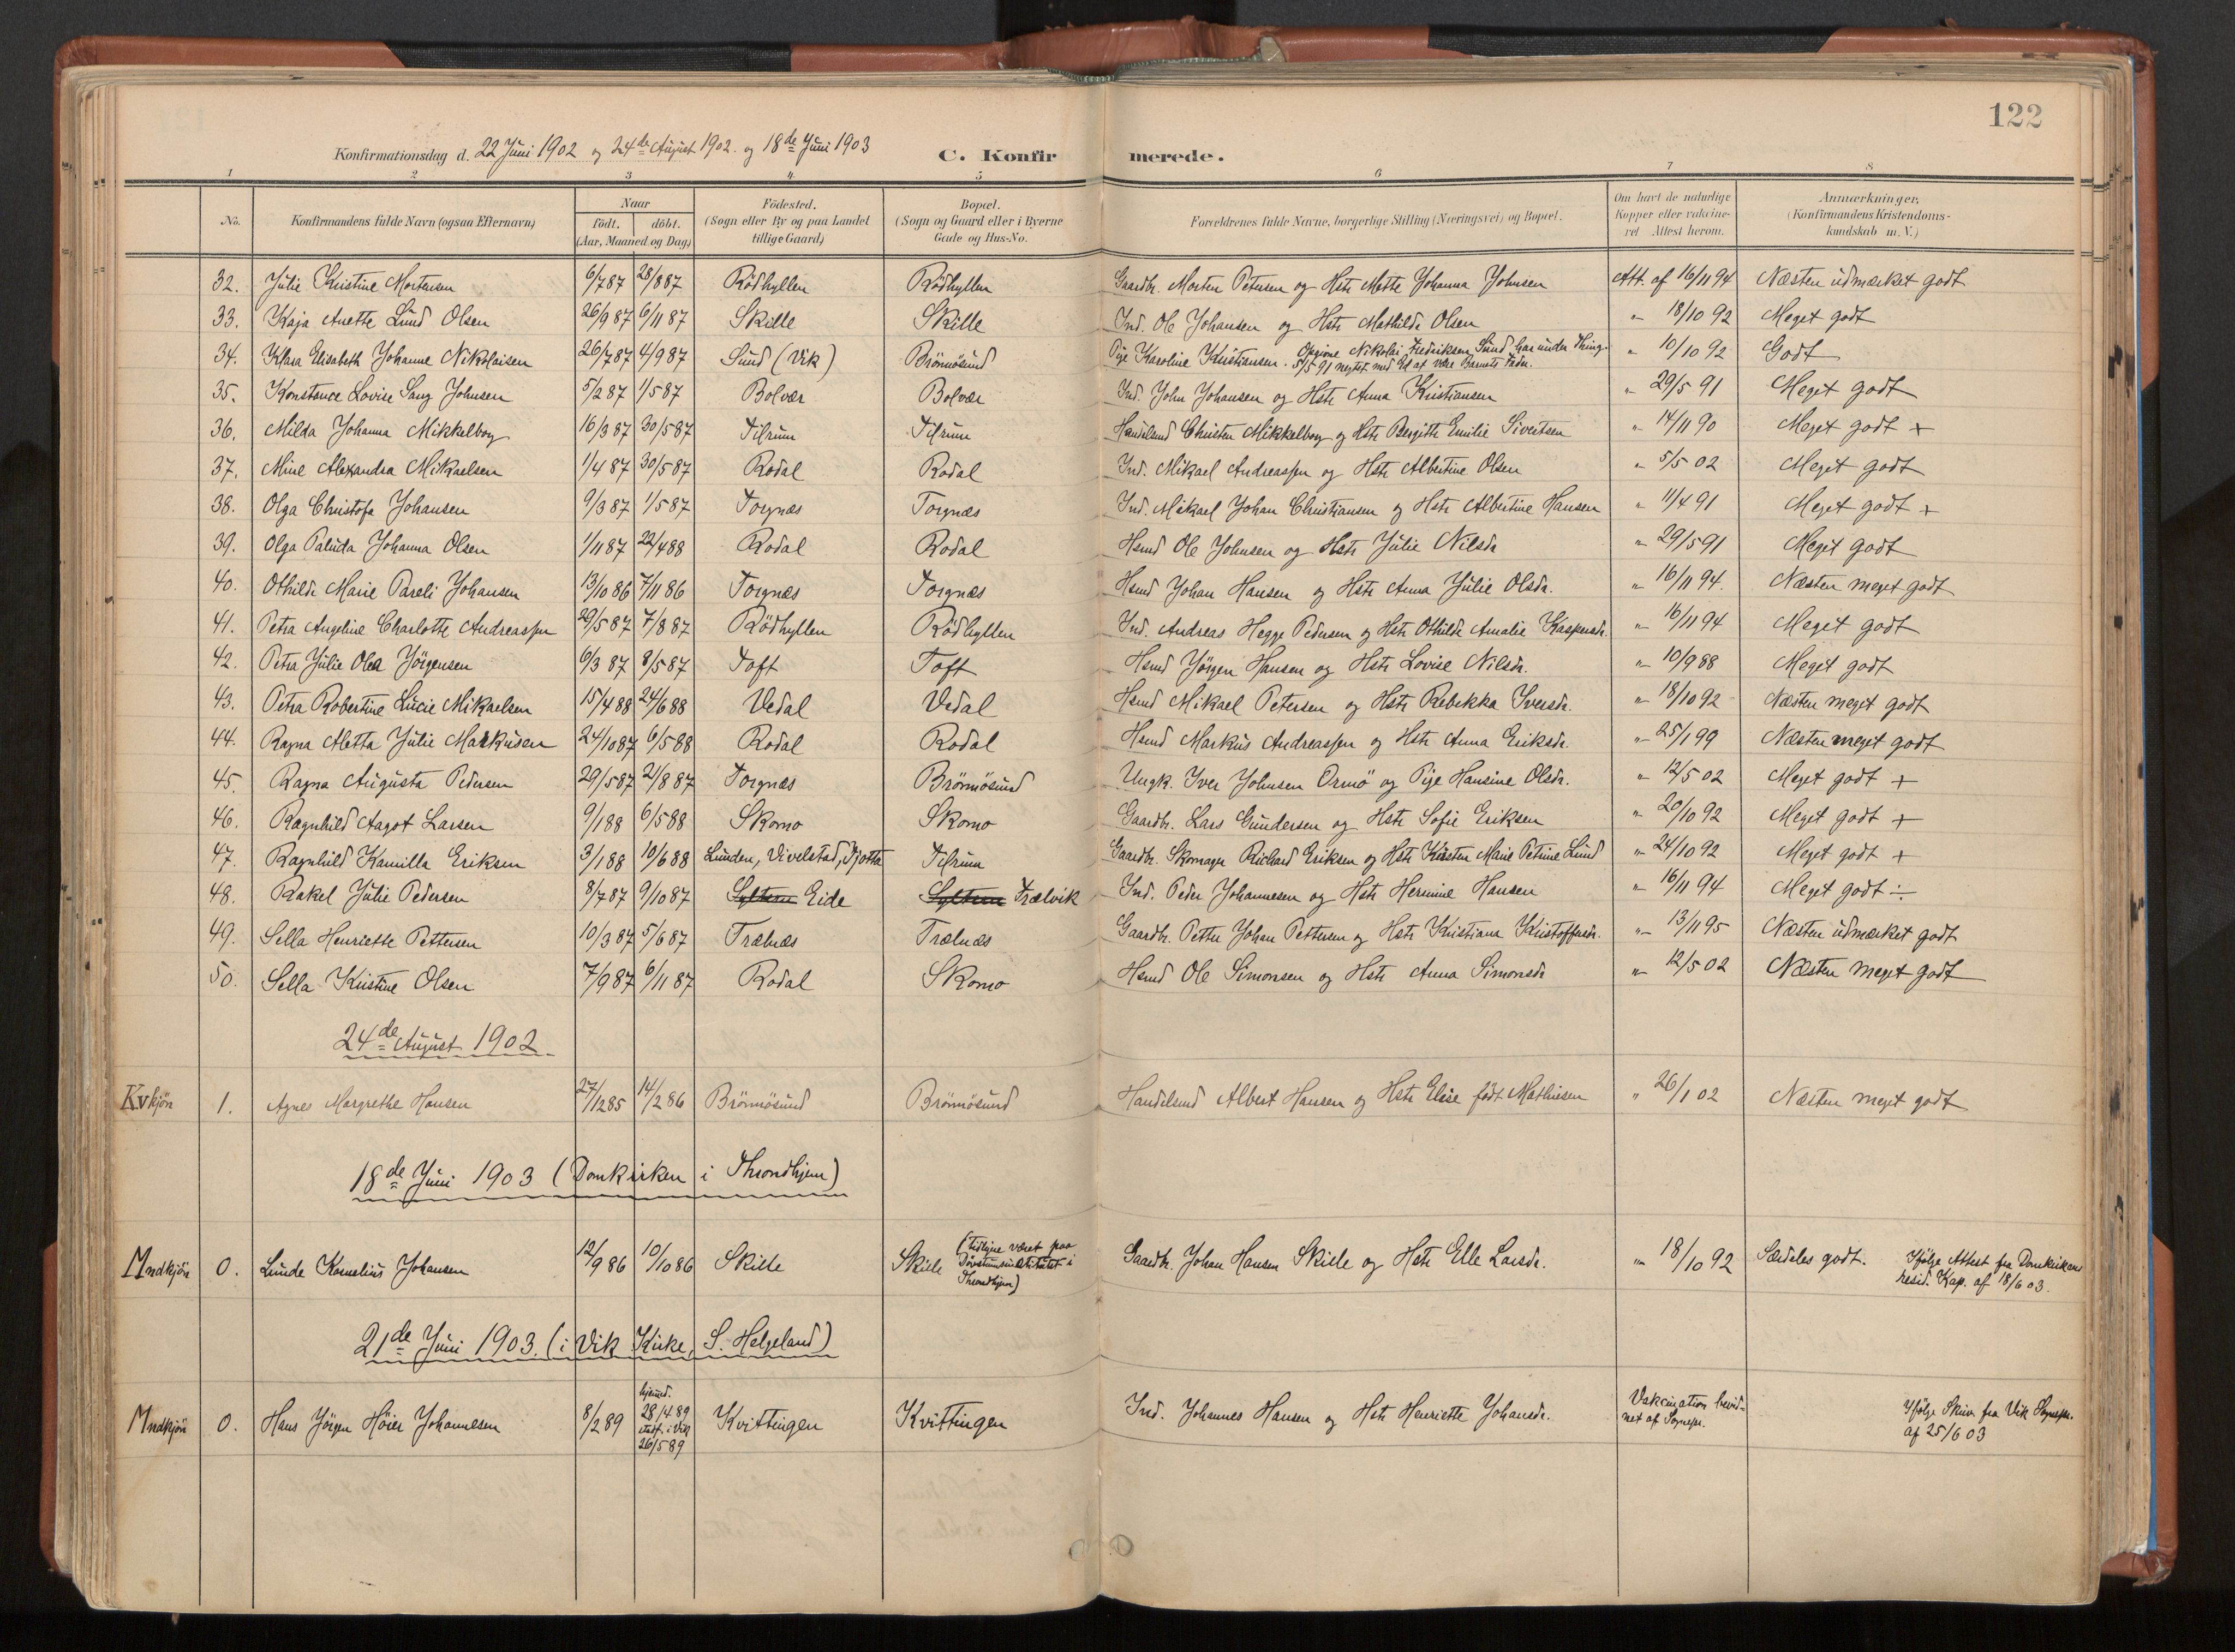 122
Konfirmationsdag d. 22 Juni 1902 og 24de August 1902 og 18de Juni 1903 C. Konfirmerede.
1 2 3 4 5 6 7 8
No. Konfirmandens fulde Navn (ogsaa Efternavn) Naar födt. döbt. (Aar, Maaned og Dag) Födested. (Sogn eller By og paa Landet tillige Gaard) Bopæl. (Sogn og Gaard eller i Byerne Gade og Hus-No. Forældrenes fulde Navne, borgerlige Stilling (Næringsvei) og Bopæl. Om havt de naturlige Kopper eller vaccineret Attest herom. Anmærkninger, (Konfirmandens Kristendomskundskab m. V.)
32. Julie Kristine Mortensen 6/7 87 28/8 87 Rödhyllen Rödhyllen Gaardbr. Morten Petersen og Hstr Mette Johanna Johnsen Att. af 16/11 94 Næsten udmærket godt
33. Kaja Anette Lund Olsen 26/9 87 6/11 87 Skille Skille Ind. Ole Johansen og Hstr Mathilde Olsen " 18/10 92 Meget godt
34. Klara Elisabeth Johanne Nikolaisen 26/7 87 4/9 87 Sund (Vik) Brönnösund Pige Karoline Kristiansen. Opgivne Nikolai Fredriksen Sund har under Thing 5/5 91 negtet med Ed at være Barnets Fader. " 10/10 92 Godt
35. Konstance Lovise Sang Johnsen 5/2 87 1/5 87 Bolvær Bolvær Ind. John Johansen og Hstr Anna Kristiansen " 29/5 91 Meget godt
36. Milda Johanna Mikkelborg 16/3 87 30/5 87 Tilrum Tilrum Handelsmd Christen Mikkelborg og Hstr Bergitte Emilie Sivertsen " 14/11 90 Meget godt +
37. Mine Alexandra Mikaelsen 1/4 87 30/5 87 Rodal Rodal Ind. Mikael Andreassen og Hstr Albertine Olsen " 5/5 02 Meget godt
38. Olga Christofa Johansen 9/3 87 1/5 87 Torgnæs Torgnæs Ind. Mikael Johan Christiansen og Hstr Albertine Hansen " 11/4 91 Meget godt +
39. Olga Paluda Johanna Olsen 1/11 87 22/4 88 Rodal Rodal Hsmd Ole Johnsen og Hstr Julie Nilsdr " 29/5 91 Meget godt
40. Othilde Marie Pareli Johansen 13/10 86 7/11 86 Torgnæs Torgnæs Hsmd Johan Hansen og Hstr Anna Julie Olsdr. " 16/11 94. Næsten meget godt
41. Petra Angeline Charlotte Andreassen 29/5 87 7/8 87 Rödhyllen Rödhyllen Ind. Andreas Hegge Pedersen og Hstr Othilde Amalie Kaspersdr. " 16/11 94 Meget godt
42. Petra Julie Olea Jörgensen 6/3 87 8/5 87 Toft Toft Hsmd Jörgen Hansen og Hstr Lovise Nilsdr. " 10/9 88 Meget godt
43. Petra Robertine Lucie Mikaelsen 15/4 88 24/6 88 Vedal Vedal Hsmd Mikael Petersen og Hstr Rebekka Iversdr. " 18/10 92 Næsten meget godt
44. Ragna Aletta Julie Markusen 24/10 87 6/5 88 Rodal Rodal Hsmd Markus Andreassen og Hstr Anna Eriksdr. " 25/1 99 Næsten meget godt
45. Ragna Augusta Pedersen 29/5 87 21/8 87 Torgnæs Brönnösund Ungk. Iver Johnsen Ormö og Pige Hansine Olsdr. " 12/5 02 Meget godt +
46. Ragnhild Aagot Larsen 9/1 88 6/5 88 Skomo Skomo Gaardbr. Lars Gundersen og Hstr Sofie Eriksen " 20/10 92 Meget godt +
47. Ragnhild Kamilla Eriksen 3/1 88 10/6 88 Lunden, Vivelstad, Tjötta Tilrum Gaardbr. Skomager Richard Eriksen og Hstr Kirsten Marie Petrine Lund " 24/10 92 Meget godt +
48. Rakel Julie Pedersen 8/7 87 9/10 87 Eide Trælvik Ind. Peder Johannesen og Hstr Hermine Hansen " 16/11 94 Meget godt ÷
49. Sella Henriette Pettersen 10/3 87 5/6 87 Trælnæs Trælnæs Gaardbr. Petter Johan Pettersen og Hstr Kristiana Kristoffersdr. " 13/11 95 Næsten udmærket godt
50. Sella Kristine Olsen 7/9 87 6/11 87 Rodal Skomo Hsmd Ole Simonsen og Hstr Anna Simonsdr " 12/5 02 Næsten meget godt
24de August 1902
Kvkjön 1. Agnes Margrethe Hansen 27/12 85 14/2 86 Brönnösund Brönnösund Handelsmd Albert Hansen og Hstr Elise födt Mathiesen " 26/1 02 Næsten meget godt
18de Juni 1903 (Domkirken i Throndhjem)
Mndkjön 0. Lunde Kornelius Johansen 12/9 86 10/10 86 Skille Skille (tidligere været paa Dövstumsinstitutet i Throndhjem) Gaardbr. Johan Hansen Skille og Hstr Elle Larsdr. " 18/10 92 Særdeles godt. Ifölge Attest fra Domkirkens resid. Kap. af 18/6 03.
21de Juni 1903. (i Vik Kirke, S. Helgeland)
Mndkjön 0. Hans Jörgen Höier Johannesen 8/2 89 hjemd. 28/4 89 stadf. i Vik 26/5 89 Kvittingen Kvittingen Ind. Johannes Hansen og Hstr Henriette Johansdr. Vakcination bevidnet af Sognepr. Ifölge Skriv. fra Vik Sognepr. af 25/6 03